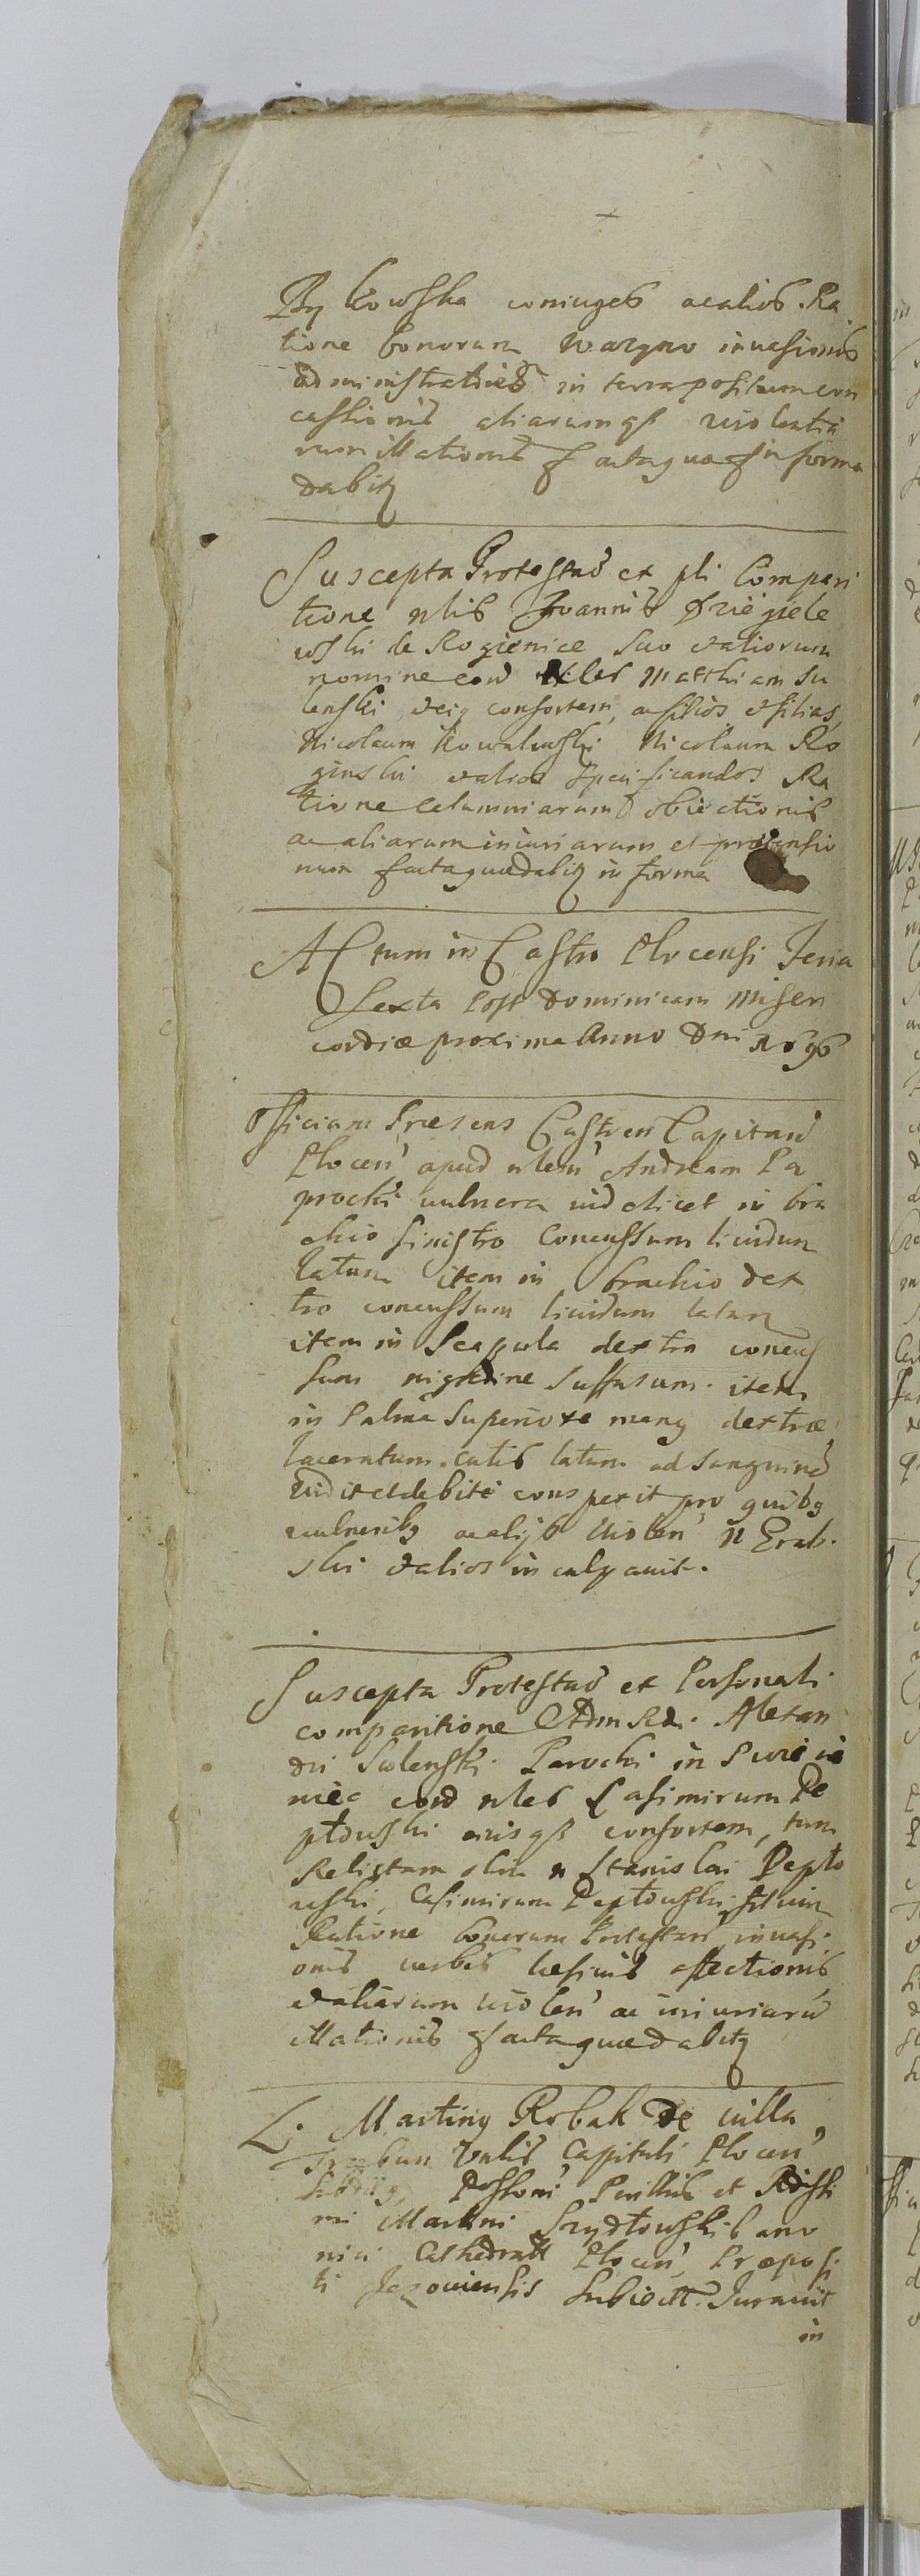 By kowska coniuges ac alios. Ra
tione bonorum Wargno inuasionis
administratricis in terra positarum con
cessionis aliarumqs uiolentia
rum illationis factaquaeqs in forma
dabitq
Suscepta Protestatio et pli Compari
tione nlis Joannis Dziegiele
wski de Rogienice Suo et aliorum
nomine con nles Matthiam Su
lenski eciq consortem, ac filios et filias,
Nicolaum Kowalewski Nicolaum Ro
ginski et alios Specificandos Ra
tione Calumniarum obiectionis
ac aliarum iniuriarum et praetensio
num factaquedabitq in forma
Actum in Castro Plocensi Feria
Sexta Post Dominicam Miseri
cordiae proxima Anno Dni 1696
Officium Praesens Castren Capitan
Plocen apud nlem Andream Pa
procki uulnera uidelicet in bra
chio sinistro Concussum liuidum
latum item in brachio dex
tro concussum liuidum latum
item in Scapula dextra concus
sum nigredine suffusum. item
in Palma Superiore manq dextrae
laceratum cutis latum ad sanguine
uidit et debite conspexit pro quibq
uulneribq ac alijs uiolen n Grab.
ski et alios inculpauit.
Suscepta Protestatio et Personali
comparitione Adm Rdi. Alexan
dri Sulenski Parochi in
con nles Casimirum Pe
ptowski eiusqs consortem, tum
Relictam olim n Stanislai Pepto
wski, Casimirum Peptowski filium
Ratione bonorum Protestan inuasi
onis uerbis lesiuis affectionis
et aliarum uiolen ac iniuriaru
illationis factaquedabitq
L. Martinq Robak de uilla
Capituli Plocen
Possoni Perillris et Rdissi
mi Martini Szydłowski Cano
nici Cathedrall Plocen, Praeposi
ti Subditt. Jurauit
in